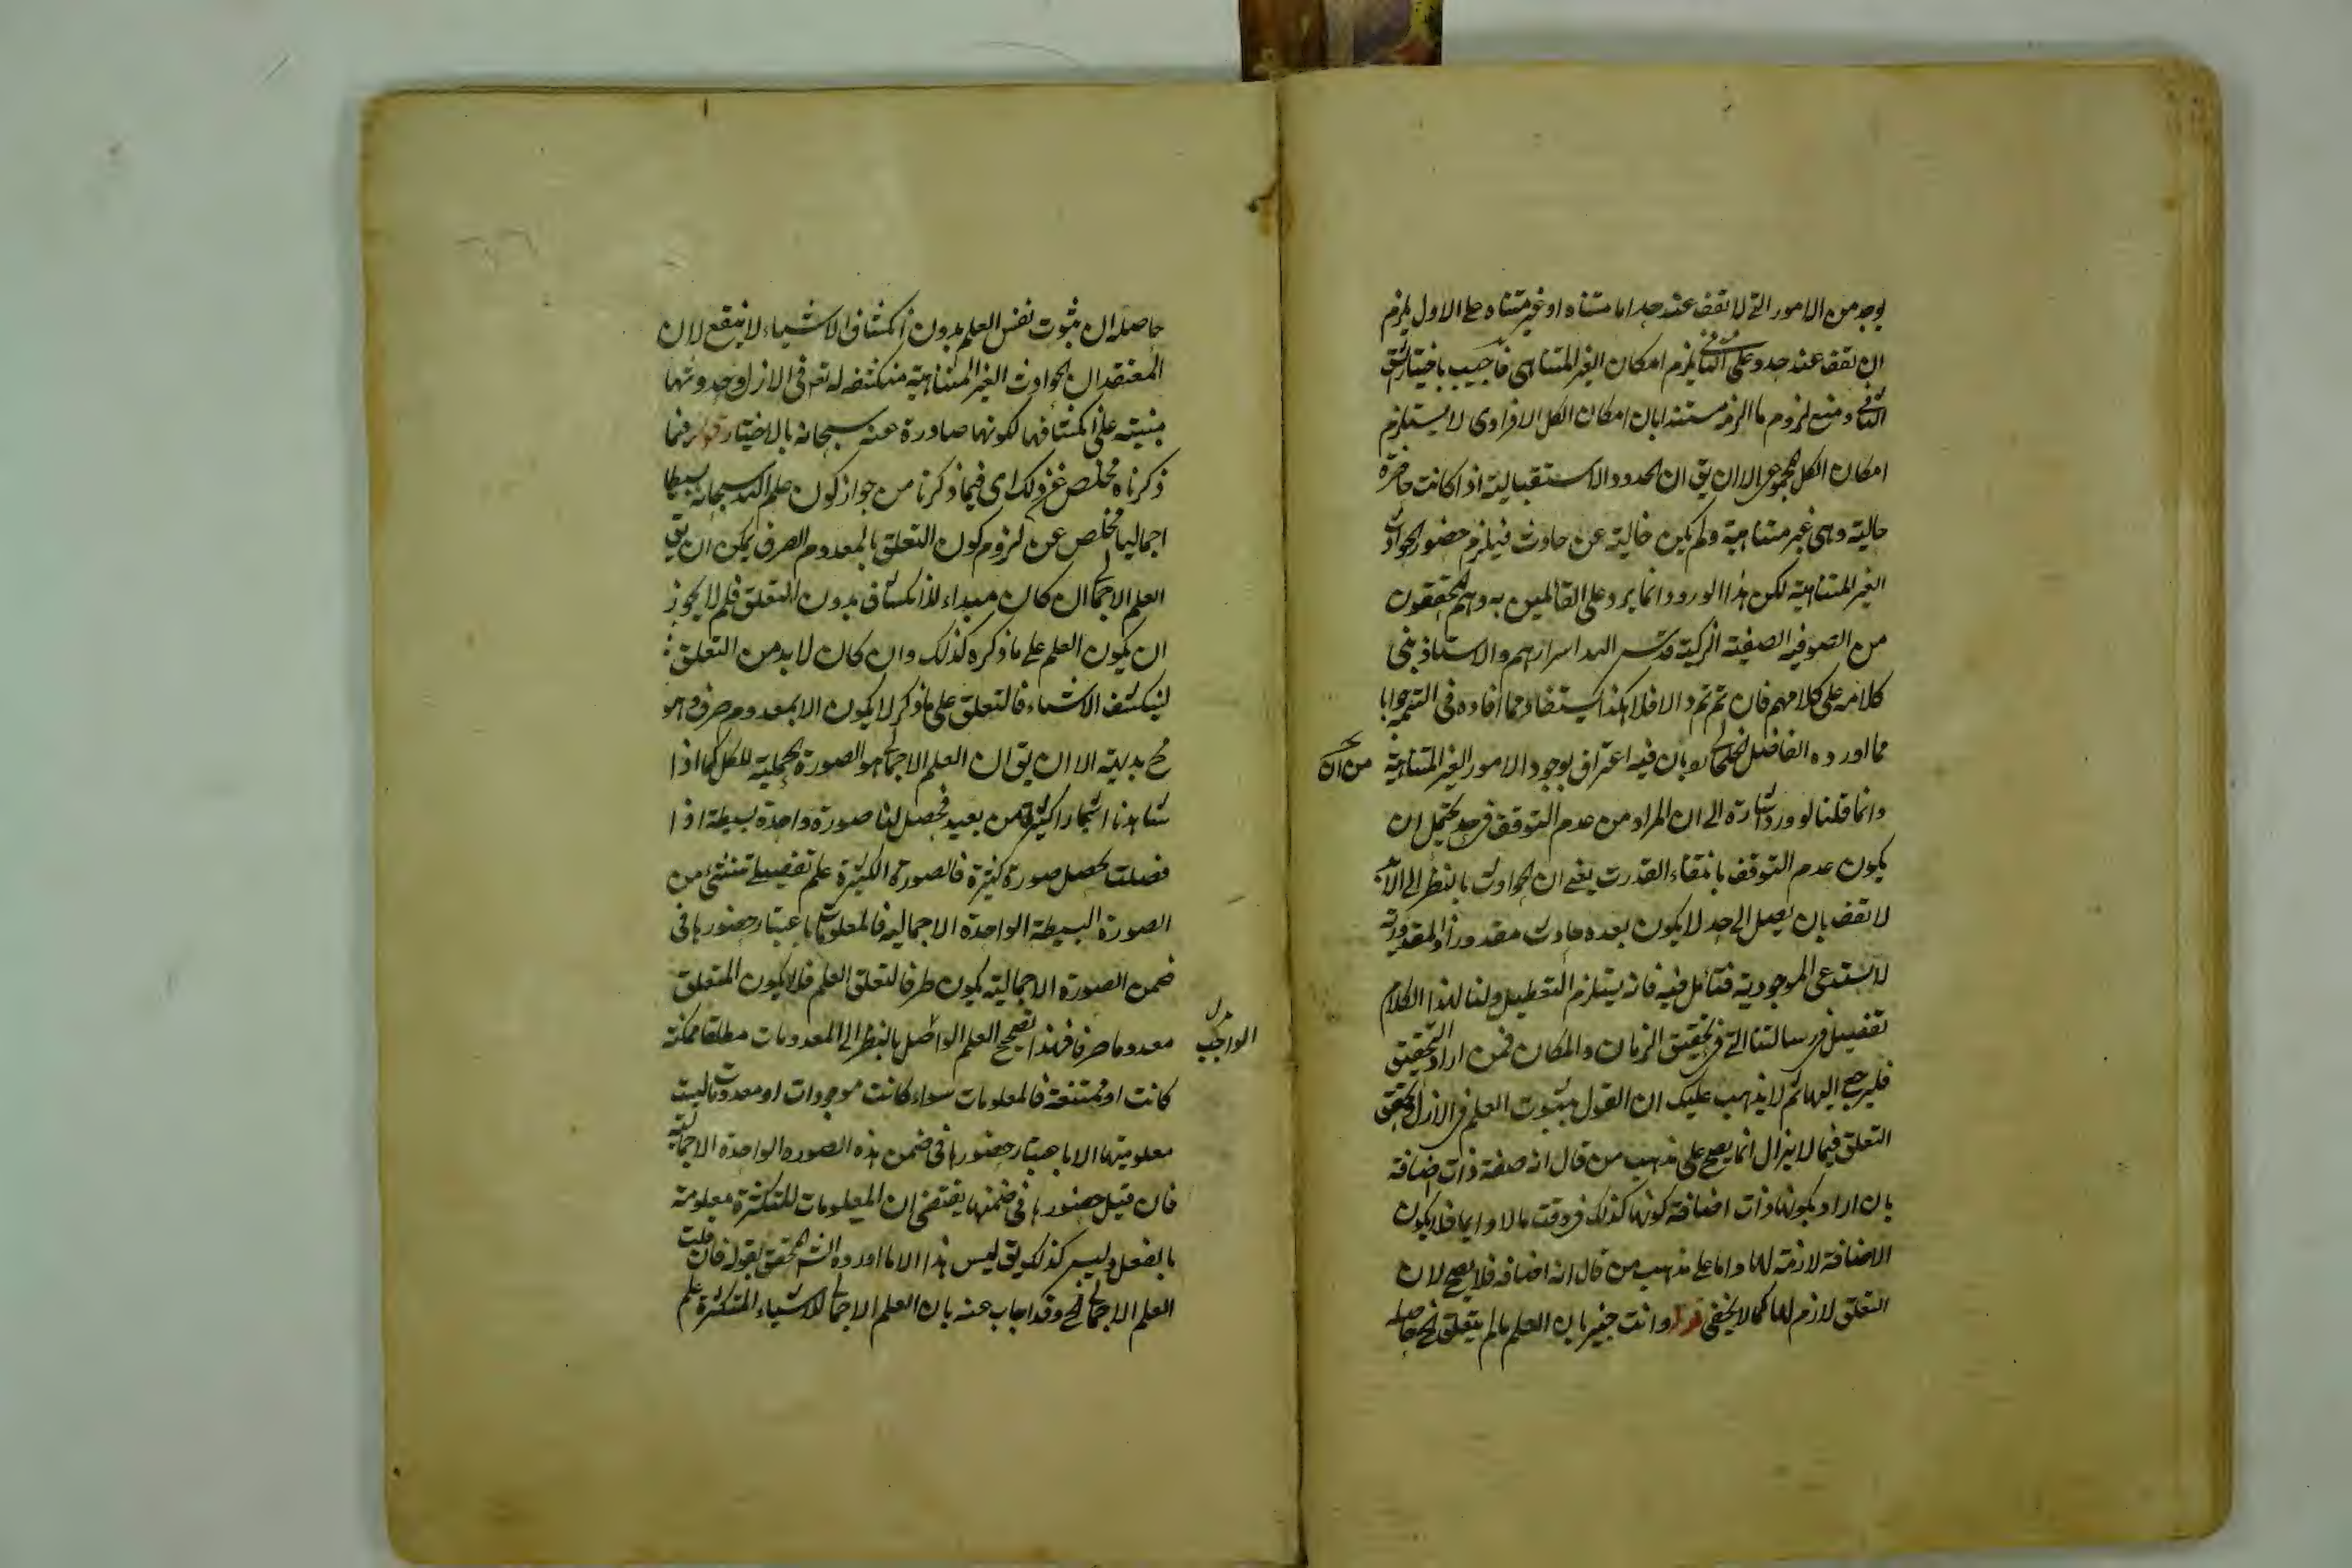 يوجد من الامور التى لا تقف عند حد اما متناه او غير متناه على الاول يلزم
ان تقف عند حد وعلى الثانى يلزم امكان الغير المتناهى فاجيب باختيار شق
الثانى ومنع لزوم ما الزم مستندا بان امكان الكل الافرادى لا يستلزم
امكان الكل المجموعى الا ان يق ان الحدود الاستقبالية اذا كانت حاضرة
حالية وهى غير متناهية ولم يكن خالية عن حادث فيلزم حضور الحوادث
الغير المتناهية لكن هذا الورود انما يرد على القائلين به وهم المحققون
من الصوفيه الصفية الزكية قدس الله اسرارهم والاستاذ بنى
كلامه على كلامهم فان تم تم والا فلا هكذا يستفاد مما افاده فى التتمه جوابا
مما اورده الفاضل الخلخالى بان فيه اعتراف بوجود الامور الغير المتناهية
من ان
وانما قلنا لو ورد اشارة الى ان المراد من عدم التوقف فى حد يحتمل ان
يكون عدم التوقف بانتفاء القدرت يعنى ان الحوادث بالنظر الى
لا تقف بان يصل الى حد لا يكون بعده حادث مقدورا والمقدورية
لا تستدعى الموجودية فتأمل فيه فانه يستلزم التعطيل ولنا لهذا الكلام
تفصيل فى رسالتنا التى فى تحقيق الزمان والمكان فمن اراد التحقيق
فليرجع اليها ثم لا يذهب عليك ان القول بثبوت العلم فى الازل وتحقق
التعلق فيما لا يزال انما يصح على مذهب من قال انه صفة ذات اضافة
بان اراد بكونها ذات اضافة كونها كذلك فى وقت ما لا دايما فلا يكون
الاضافة لازمة لها واما على مذهب من قال انه اضافه فلا يصح لان
التعلق لازم لها كما لا يخفى قوله وانت خبير بان العلم ما لم يتعلق الخ حاصله
حاصله ان ثبوت نفس العلم بدون انكشاف الاشياء لا ينفع لان
المعتقد ان الحوادث الغير المتناهية منكشفه له تعم فى الازل وحدوثها
مبنيته على انكشافها لكونها صادرة عنه سبحانه بالاختيار قوله فيما
ذكرناه مخلص عن ذلك اى فيما ذكرنا من جواز كون علم الله سبحانه بسيطا
اجماليا مخلص عن لزوم كون التعلق بالمعدوم الصرف يمكن ان يق
العلم الاجمالى ان كان مبداء للانكشاف بدون التعلق فلم لا يجوز
ان يكون العلم على ما ذكره كذلك وان كان لا بد من التعلق
لينكشف الاشياء فالتعلق على ما ذكر لا يكون الا بمعدوم صرف وهو
مح بديهة الا ان يق ان العلم الاجمالى هو الصورة الجملية للكل كما اذا
شاهدنا اشجارا كثيرة من بعيد فحصل لنا صورة واحدة بسيطة اذا
فصلت يحصل صورة كثيرة فالصورة الكثيرة علم تفصيلى تنشئ من
الصورة البسيطة الواحدة الاجماليه فالمعلومات باعتبار حضورها فى
ضمن الصورة الاجمالية يكون طرفا لتعلق العلم فلا يكون المتعلق
معدوما صرفا فهذا تصحيح العلم الواصل بالنظر الى المعدومات مطلقا ممكنة
الواجب
كانت او ممتنعة فالمعلومات سواء كانت موجودات او معدومات ليست
معلوميتها الا باعتبار حضورها فى ضمن هذه الصوره الواحدة الاجمالية
فان قيل حضورها فى ضمنها يقتضى ان المعلومات المتكثرة معلومة
بالفعل وليس كذلك يق ليس هذا الا ما اورده الش المحقق بقوله فان قلت
العلم الاجمالى الخ وقد اجاب عنه بان العلم الاجمالى للاشياء المتكثرة علم